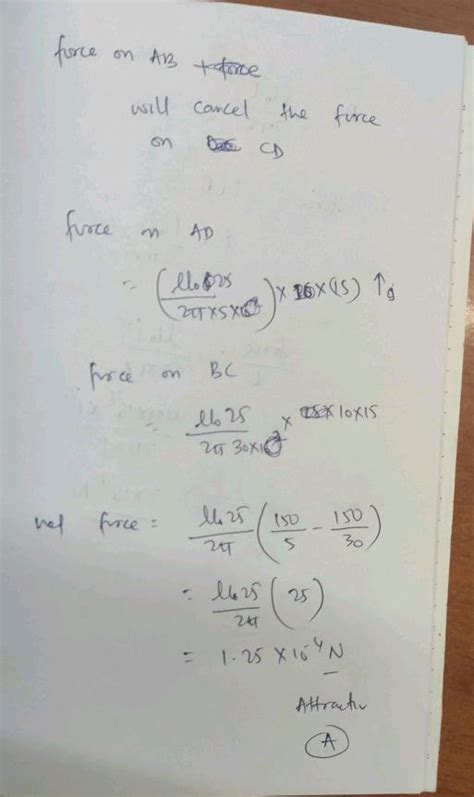 force on AB
will cancel the force
on CD
force on AD
= (μ₀ 25 / 2π × 5 × 10⁻²) × 10 × (15) ↑
force on BC
= μ₀ 25 / 2π 30 × 10⁻² × 10 × 15
net force = μ₀ 25 / 2π (150/5 − 150/30)
= μ₀ 25 / 2π (25)
= 1.25 × 10⁻⁴ N
Attractiv
A